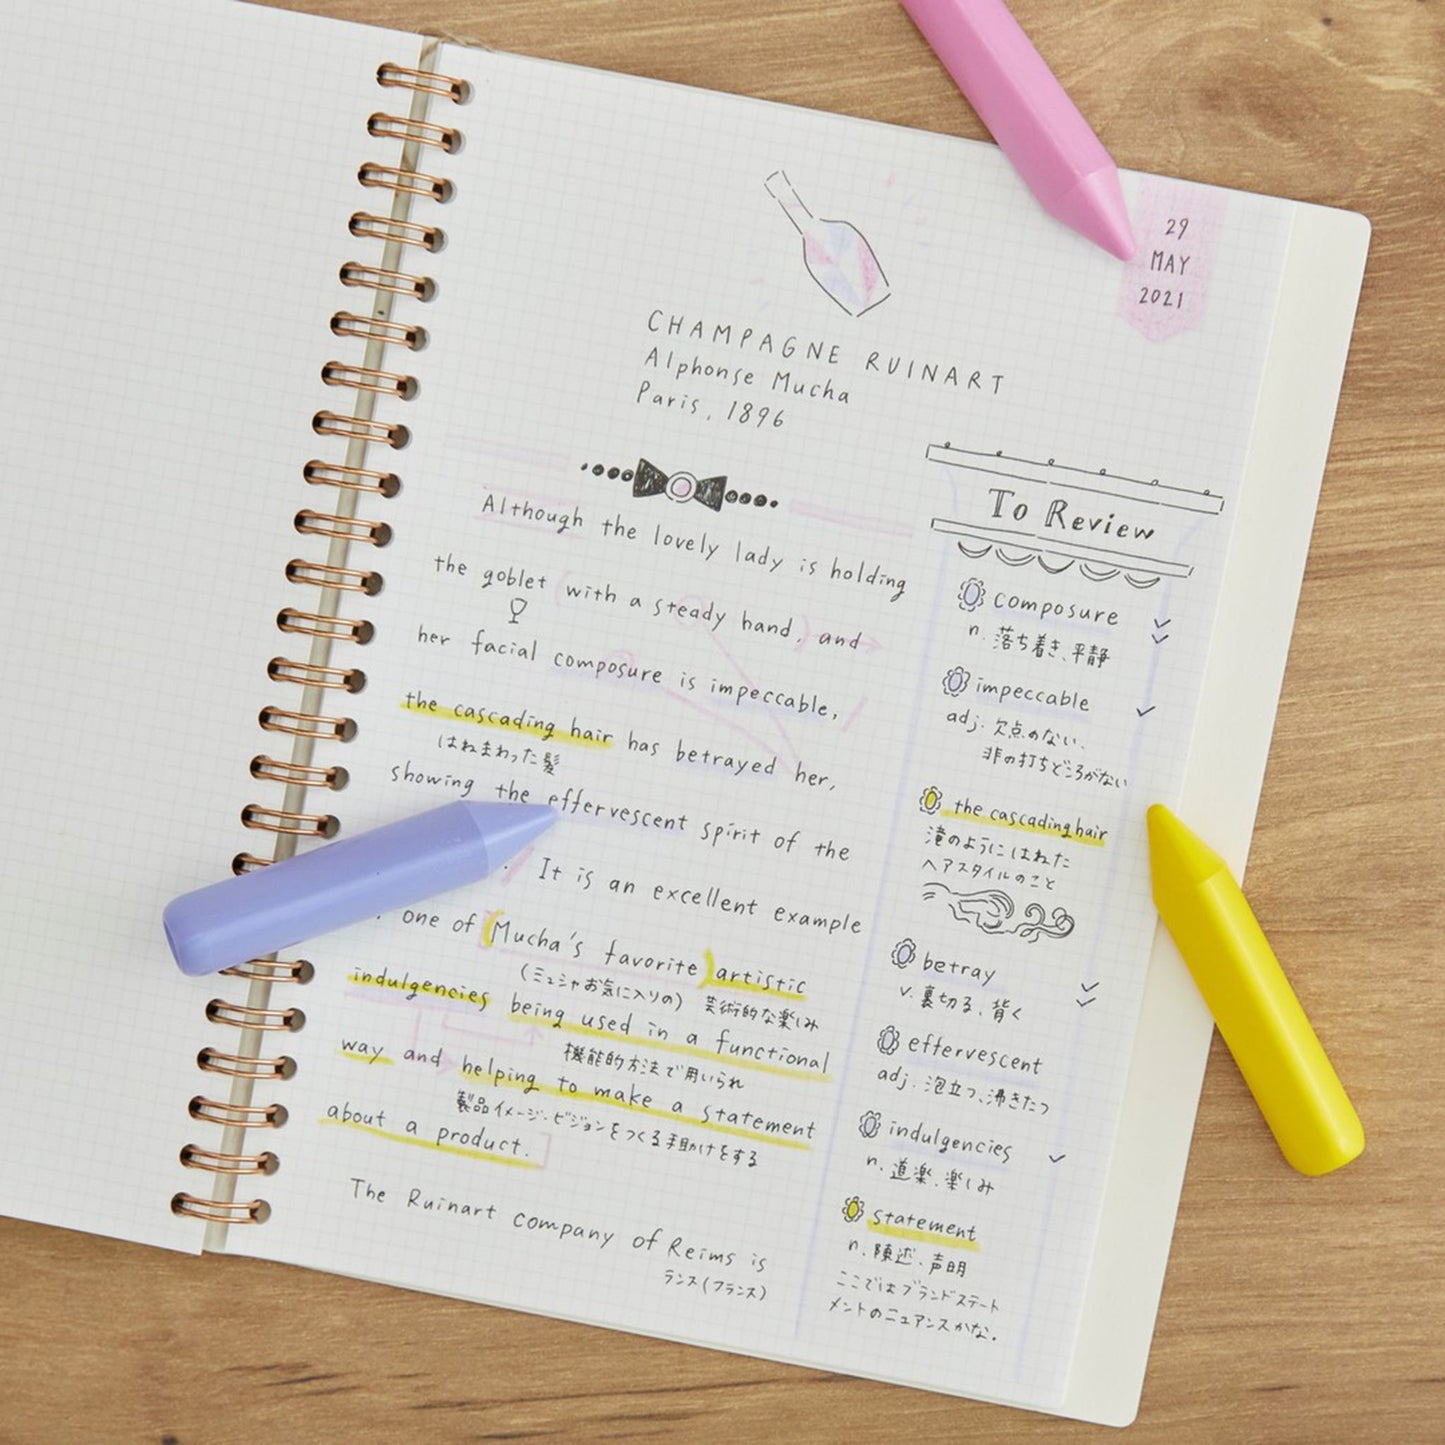 29
MAY
2021
CHAMPAGNE RUINART
Alphonse Mucha
Paris, 1896
Although the lovely lady is holding
the goblet with a steady hand, and
her facial composure is impeccable,
the cascading hair has betrayed her,
はねまわった髪
showing the effervescent spirit of the
. It is an excellent example
one of (Mucha's favorite) artistic
(ミュシャお気に入りの) 芸術的な楽しみ
indulgencies being used in a functional
機能的方法で用いられ
way and helping to make a statement
製品イメージ・ビジョンをつくる手助けをする
about a product.
The Ruinart company of Reims is
ランス(フランス)
To Review
composure
n. 落ち着き、平静
impeccable
adj. 欠点のない、
非の打ちどころがない
the cascading hair
滝のようにはねた
ヘアスタイルのこと
betray
v. 裏切る、背く
effervescent
adj. 泡立つ、沸きたつ
indulgencies
n. 道楽、楽しみ
statement
n. 陳述、声明
ここではブランドステート
メントのニュアンスかな。